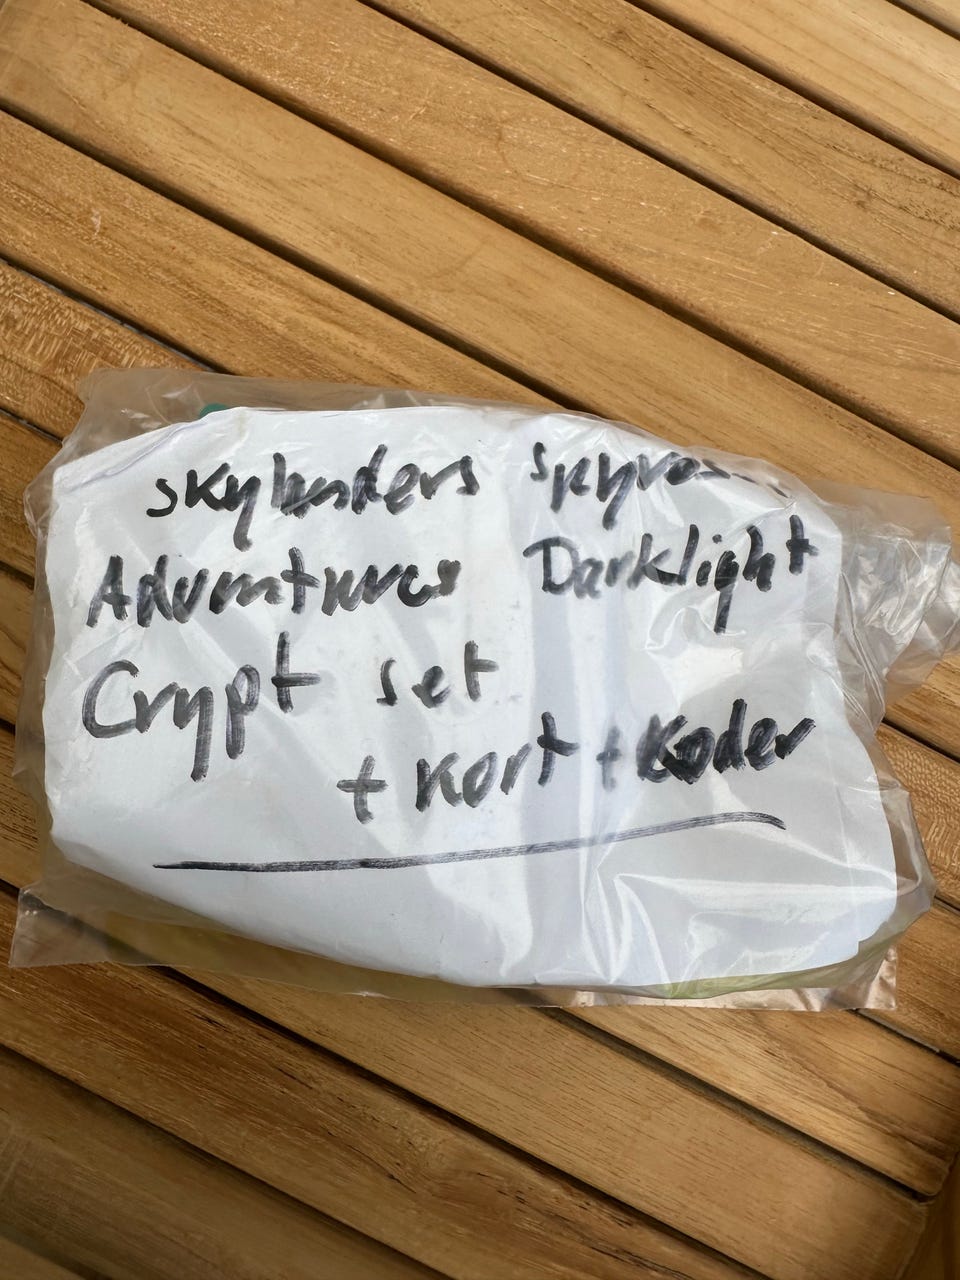 skylanders spyros
Adventures Darklight
Crypt set
+ kort + koder